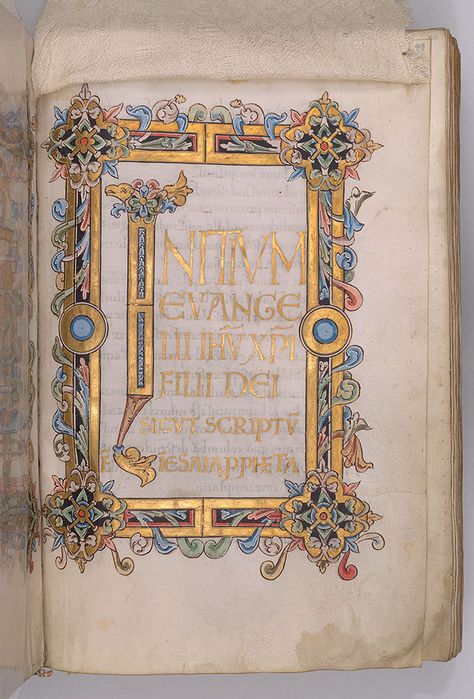 INITIVM
EVANGE
LII IHV̄ XP̄I
FILII DEI
SICVT SCRIPTV̄
Ē IESAIA PPHETA